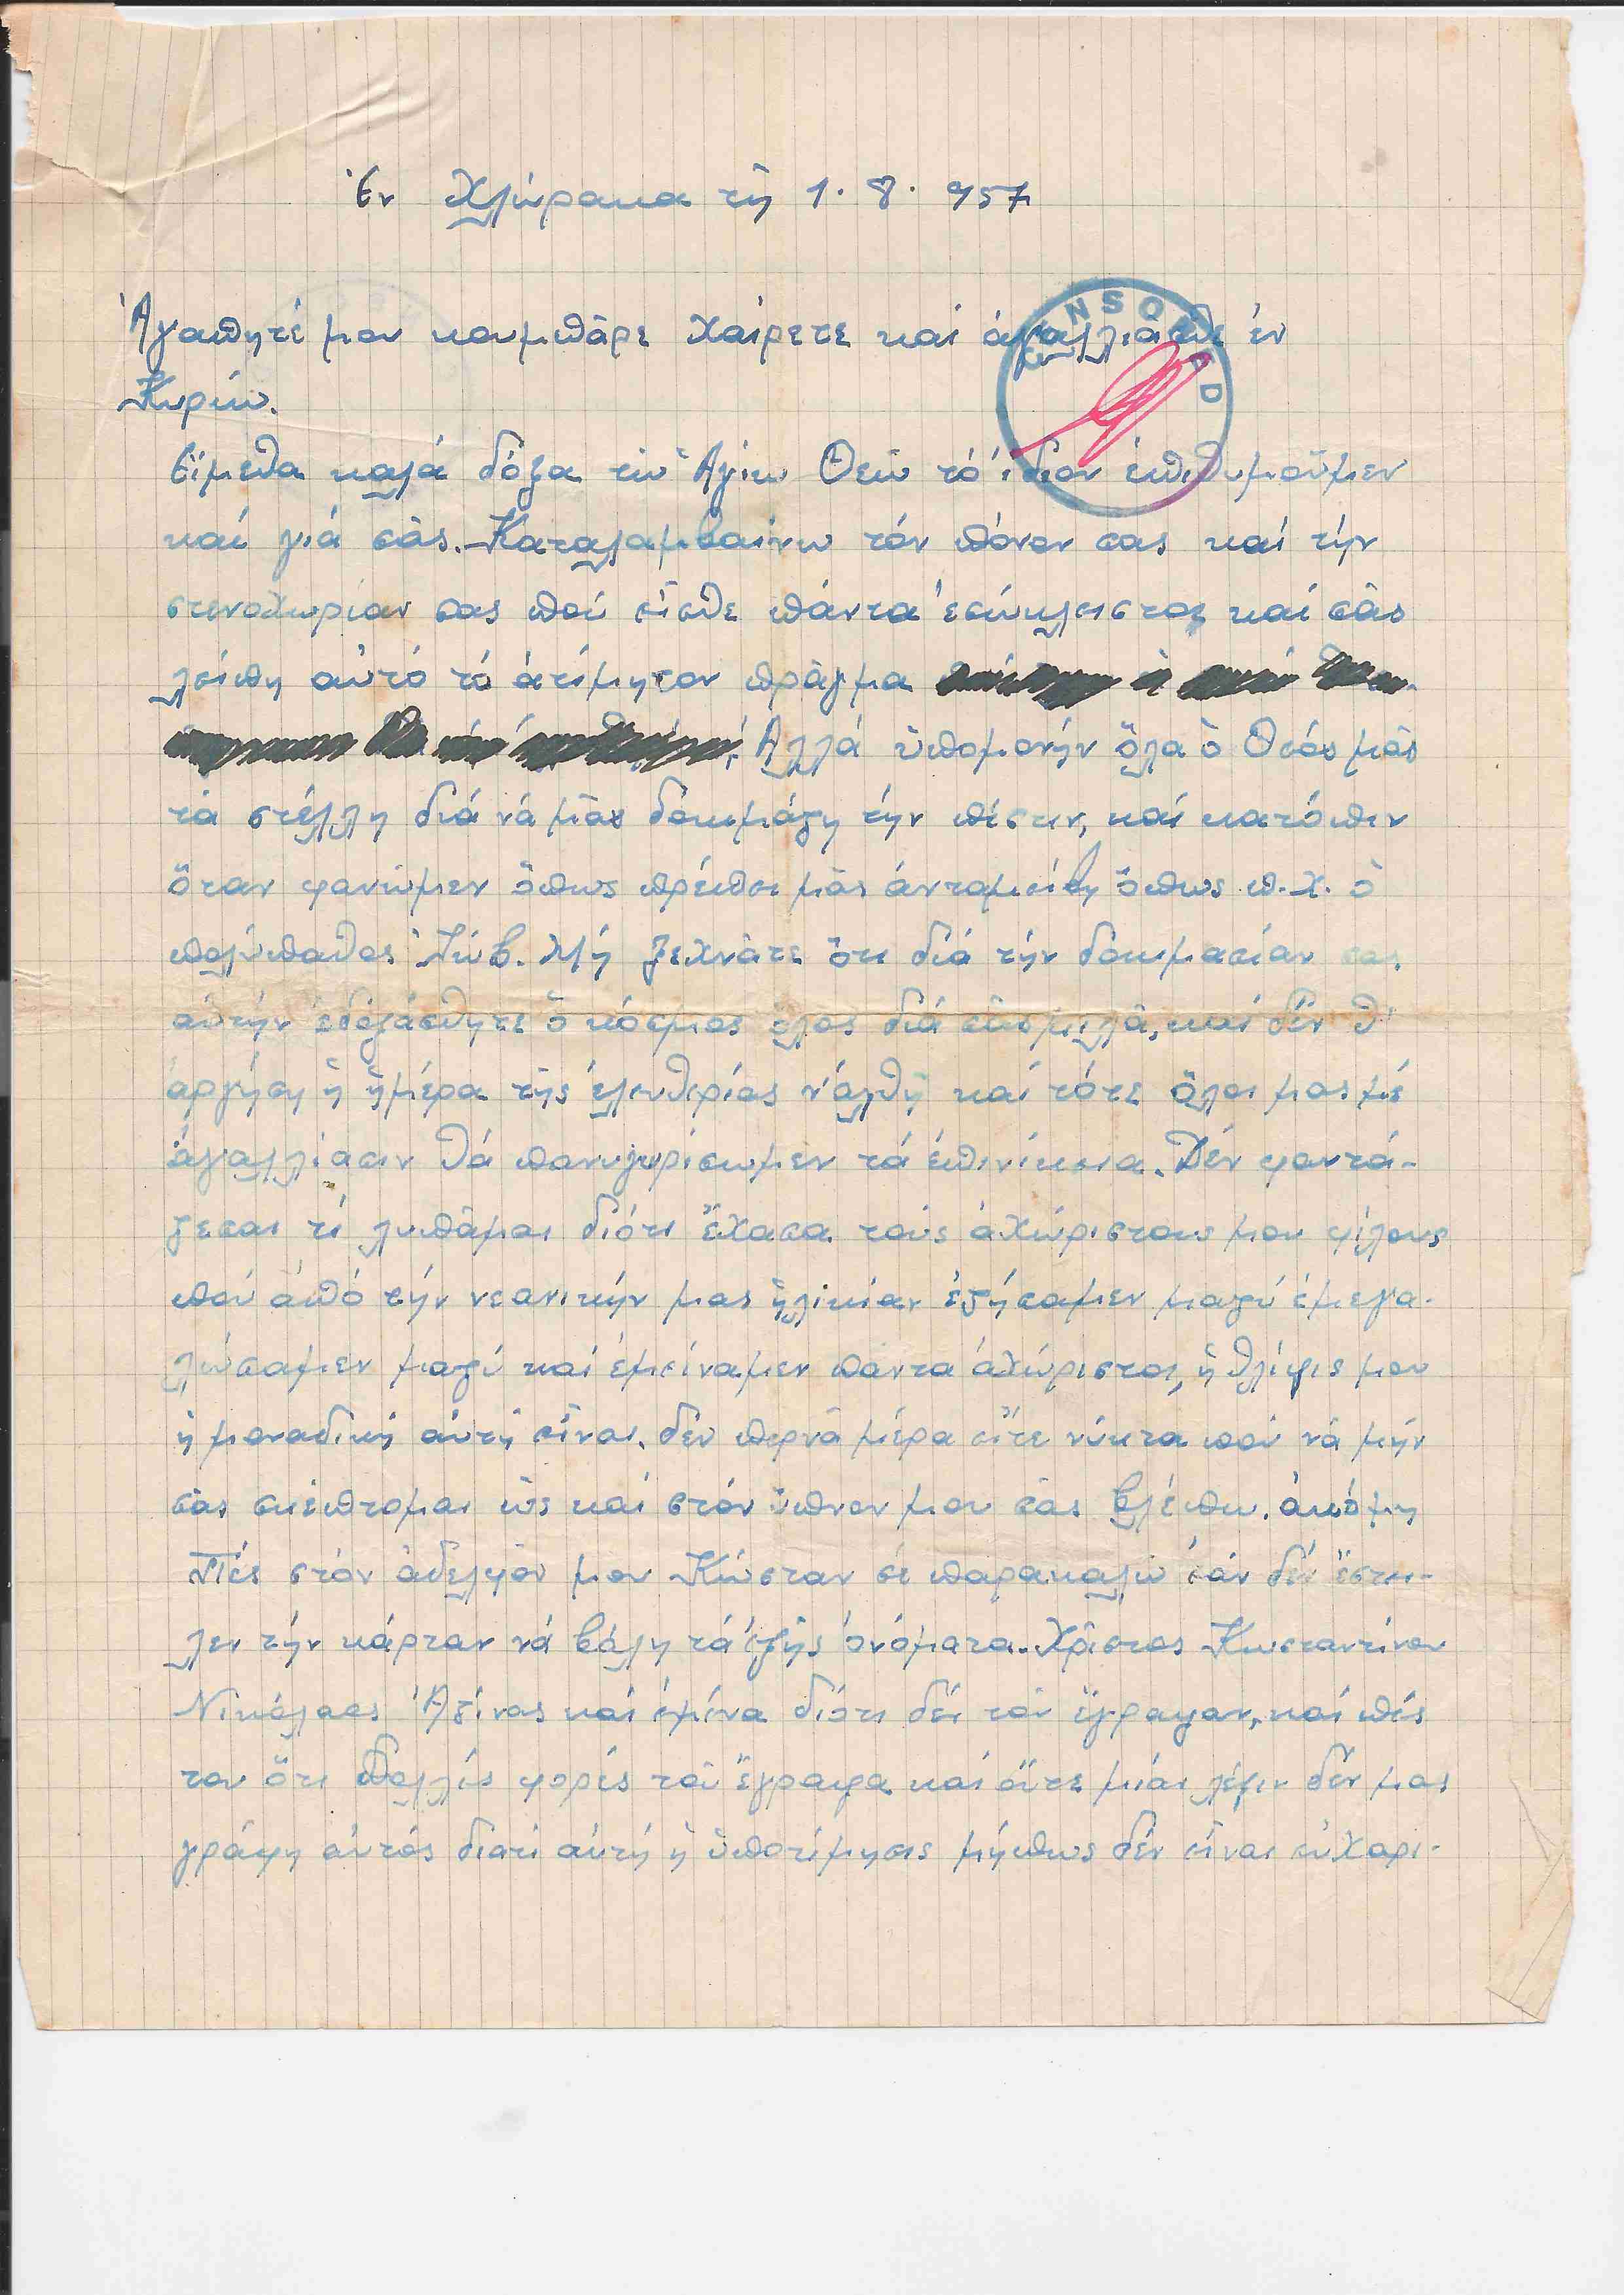 Ἐν Χλώρακα τῇ 1. 8. 957
CENSORED
Ἀγαπητέ μου κουμπᾶρε χαίρετε καί ἀγαλλιᾶσθε ἐν
Κυρίω.
Εἴμεθα καλά δόξα τῶ Ἁγίω Θεῶ τό ἴδιον ἐπιθυμοῦμεν
καί γιά σᾶς. Καταλαμβαίνω τόν πόνον σας καί τήν
στενοχωρίαν σας πού εἶσθε πάντα ἐσώκλειστος καί σᾶς
λείπη αὐτό τό ἀτίμητον πρᾶγμα
Ἀλλά ὑπομονήν ὅλα ὁ Θεός μᾶς
τά στέλλη διά νά μᾶς δοκιμάζη τήν πίστιν, καί κατόπιν
ὅταν φανῶμεν ὅπως πρέπει μᾶς ἀνταμείβη ὅπως π.χ. ὁ
πολύπαθος Ἰώβ. Μή ξεχνᾶτε ὅτι διά τήν δοκιμασίαν σας
αὐτήν ἐδοξάσθητε ὁ κόσμος ὅλος διά σᾶς μιλᾶ, καί δέν θ'
ἀργήση ἡ ἡμέρα τῆς ἐλευθερίας νἄλθη καί τότε ὅλοι μας μέ
ἀγαλλίασιν θά πανυγυρίσωμεν τά ἐπινίκεια. Δέν φαντά-
ζεσαι τί λυπᾶμαι διότι ἔχασα τούς ἀχώριστους μου φίλους
πού ἀπό τήν νεανικήν μας ἡλικίαν ἐζήσαμεν μαζύ ἐμεγα-
λώσαμεν μαζύ καί ἐμείναμεν πάντα ἀχώριστοι, ἡ θλίψις μου
ἡ μοναδική αὐτή εἶναι. δέν περνᾶ μέρα οἴτε νύκτα πού νά μήν
σᾶς σκέπτομαι ὡς καί στόν ὕπνον μου σᾶς βλέπω. ἀκόμη
Πές στόν ἀδελφόν μου Κώσταν σέ παρακαλῶ ἐάν δέν ἔστει-
λεν τήν κάρταν νά βάλη τά ἑξῆς ὀνόματα. Χρίστος Κωσταντίνου
Νικόλαος Ἀζίνας καί ἐμένα διότι δέν τοῦ ἔγραψαν, καί πές
του ὅτι πολλές φορές τοῦ ἔγραψα καί οὔτε μίαν λέξιν δέν μας
γράφη αὐτός διατί αὐτή ἡ ὑποτίμησις μήπως δέν εἶναι εὐχαρι-